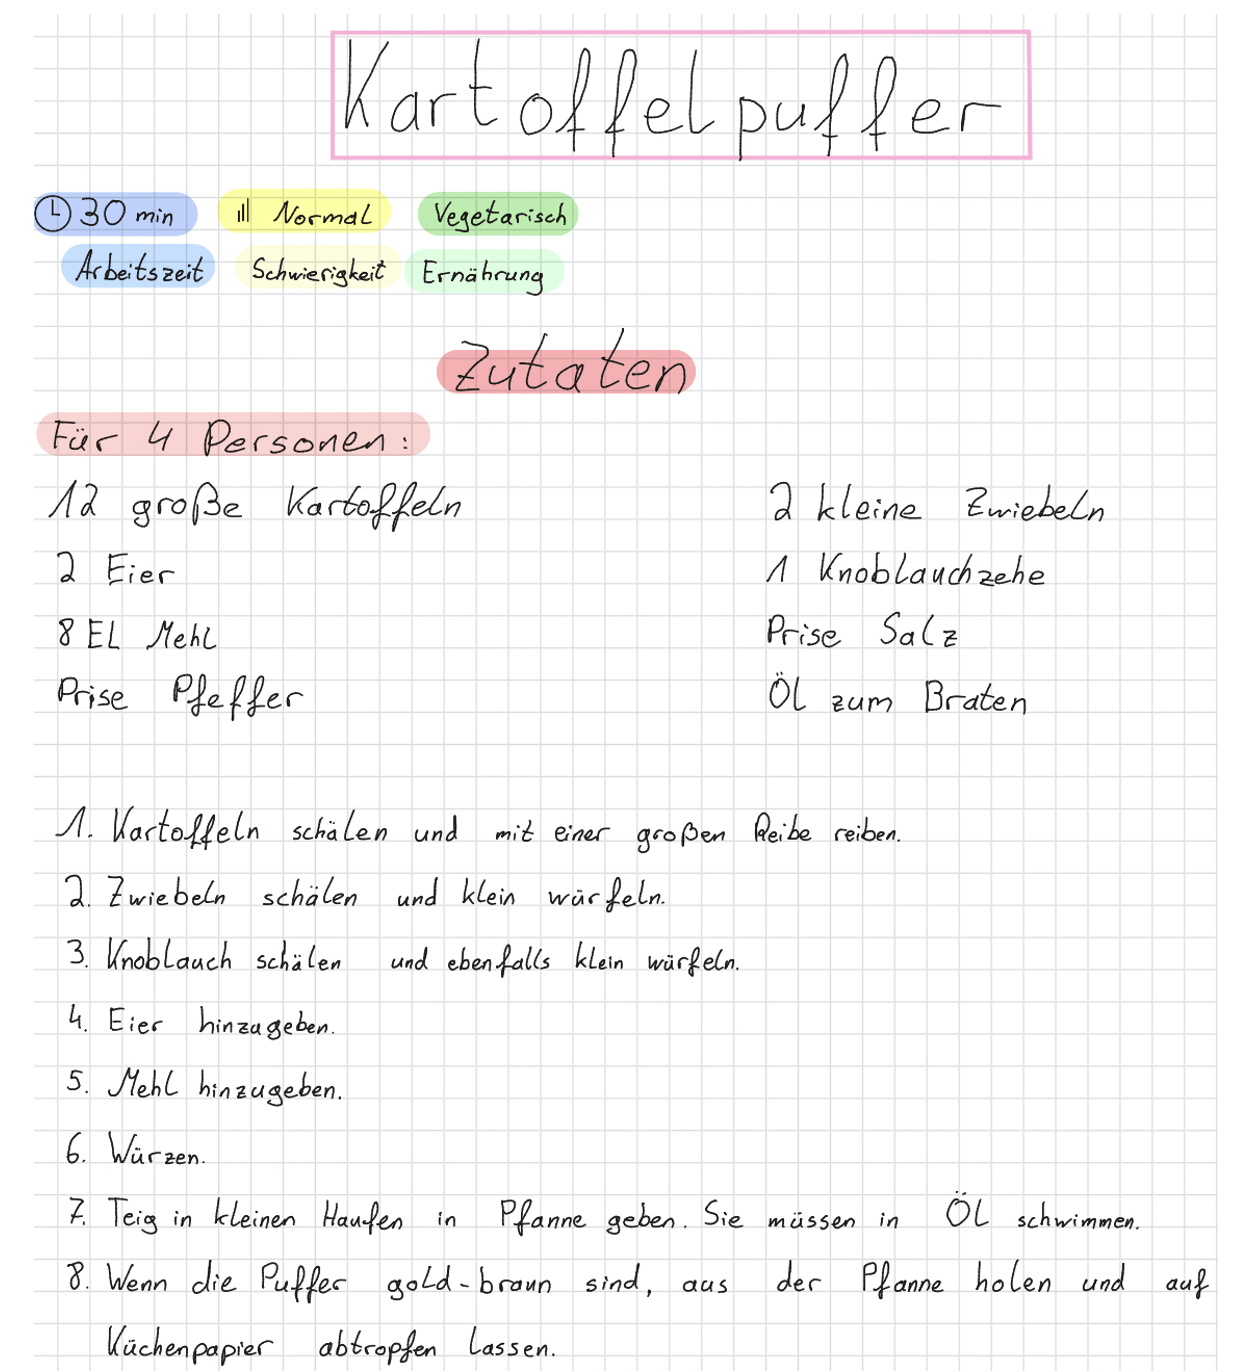 Kartoffelpuffer
30 min Normal Vegetarisch
Arbeitszeit Schwierigkeit Ernährung
Zutaten
Für 4 Personen:
12 große Kartoffeln 2 kleine Zwiebeln
2 Eier 1 Knoblauchzehe
8 EL Mehl Prise Salz
Prise Pfeffer Öl zum Braten
1. Kartoffeln schälen und mit einer großen Reibe reiben.
2. Zwiebeln schälen und klein würfeln.
3. Knoblauch schälen und ebenfalls klein würfeln.
4. Eier hinzugeben.
5. Mehl hinzugeben.
6. Würzen.
7. Teig in kleinen Haufen in Pfanne geben. Sie müssen in Öl schwimmen.
8. Wenn die Puffer gold-braun sind, aus der Pfanne holen und auf
Küchenpapier abtropfen lassen.